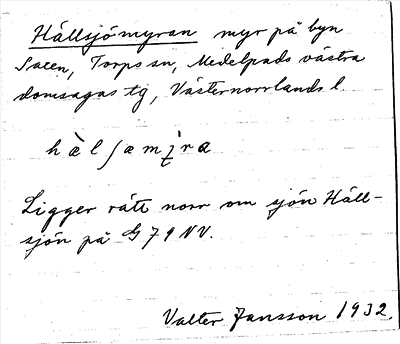 Hällsjömyran myr på byn
Saeen, Torps sn, Medelpads västra
domsagas tg, Västernorrlands l.
Ligger rätt norr om sjön Häll-
sjön på G 79 NV.
Valter Jansson 1932.